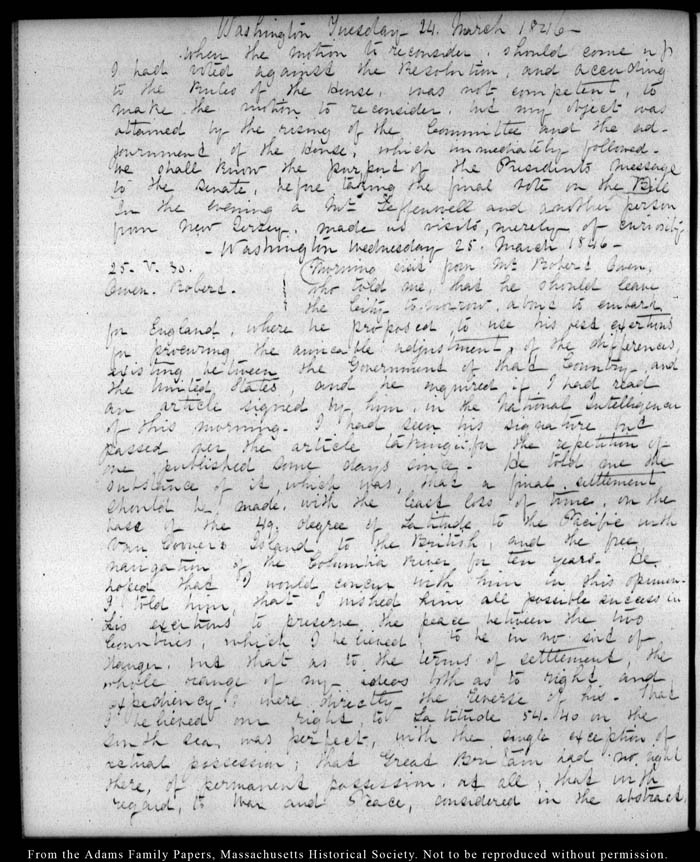 Washington Tuesday 24. March 1846-
when the motion to reconsider. should come up
I had voted against the Resolution, and according
to the Rules of the House, was not competent, to
make the motion to reconsider. but my object was
attained by the rising of the Committee and the ad-
journment of the House, which immediately followed-
we shall know the purport of the Presidents message
to the Senate, before taking the final vote on the Bill
In the evening a Mr Leffenwell and another person
from New Jersey. made us visits, merely of curiosity
- Washington Wednesday 25. March 1846-
25. V. 30.
Owen. Robert.
Morning visit from Mr Robert Owen,
who told me, that he should leave
the City to-morrow, about to embark
for England, where he proposed, to use his best exertions
for procuring the amicable adjustment, of the differences,
existing between the Government of that Country, and
the United States, and he inquired if I had read
an article signed by him, in the National Intelligencer
of this morning. I had seen his signature but
passed over the article taking it for the repetition of
one published some days since. He told me the
substance of it, which was, that a final settlement
should be made, with the least loss of time, on the
base of the 49. degree of Latitude to the Pacific with
Van Coover's Island to the British, and the free
navigation of the Columbia River for ten years. He
hoped that I would concur with him in this opinion.
I told him, that I wished him all possible success in
his exertions to preserve the peace between the two
Countries, which I believed, to be in no sort of
danger. but that as to the terms of settlement, the
whole range of my ideas both as to right and
expediency were directly the reverse of his. that
I believed our right to Latitude 54.40 on the
South sea, was perfect, with the single exception of
actual possession; that Great Britain had no right
there, of permanent possession. at all, that with
regard, to War and Peace, considered in the abstract
From the Adams Family Papers, Massachusetts Historical Society. Not to be reproduced without permission.